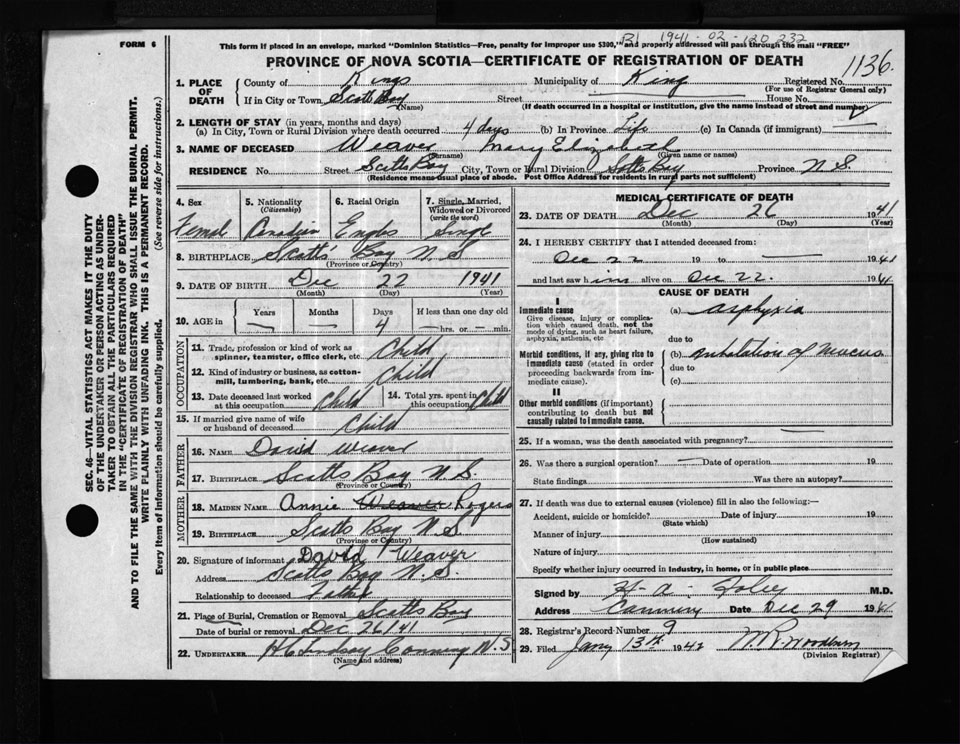 FORM 6
This form if placed in an envelope, marked "Dominion Statistics—Free, penalty for improper use $300," and properly addressed will pass through the mail "FREE"
1941-02-120232
PROVINCE OF NOVA SCOTIA—CERTIFICATE OF REGISTRATION OF DEATH
1136
1. PLACE OF DEATH
County of Kings Municipality of King Registered No.
(For use of Registrar General only)
If in City or Town Scott Bay Street House No.
(Name) (If death occurred in a hospital or institution, give the name instead of street and number)
2. LENGTH OF STAY (in years, months and days)
(a) In City, Town or Rural Division where death occurred 4 days (b) In Province Life (c) In Canada (if immigrant) —
3. NAME OF DECEASED Weaver Mary Elizabeth
(Surname) (Given name or names)
RESIDENCE No. Street Scotts Bay City, Town or Rural Division Scotts Bay Province N S
(Residence means usual place of abode. Post Office Address for residents in rural parts not sufficient)
4. Sex
Female
5. Nationality (Citizenship)
Canadian
6. Racial Origin
English
7. Single, Married, Widowed or Divorced (write the word)
Single
8. BIRTHPLACE Scotts Bay N S
(Province or Country)
9. DATE OF BIRTH Dec 22 1941
(Month) (Day) (Year)
10. AGE in Years — Months — Days 4 If less than one day old — hrs. or — min.
OCCUPATION
11. Trade, profession or kind of work as spinner, teamster, office clerk, etc. Child
12. Kind of industry or business, as cotton-mill, lumbering, bank, etc. Child
13. Date deceased last worked at this occupation Child
14. Total yrs. spent in this occupation Child
15. If married give name of wife or husband of deceased Child
FATHER
16. NAME David Weaver
17. BIRTHPLACE Scotts Bay N.S.
(Province or Country)
MOTHER
18. MAIDEN NAME Annie Weaver Rogers
19. BIRTHPLACE Scotts Bay N.S.
(Province or Country)
20. Signature of informant David Weaver
Address Scotts Bay N.S.
Relationship to deceased Father
21. Place of Burial, Cremation or Removal Scotts Bay
Date of burial or removal Dec 26/41
22. UNDERTAKER H C Lindsay Canning N.S
(Name and address)
MEDICAL CERTIFICATE OF DEATH
23. DATE OF DEATH Dec 26 1941
(Month) (Day) (Year)
24. I HEREBY CERTIFY that I attended deceased from:
Dec 22 19 to — 1941
and last saw him alive on Dec 22. 1941
CAUSE OF DEATH
I
Immediate cause
Give disease, injury or complication which caused death, not the mode of dying, such as heart failure, asphyxia, asthenia, etc
(a) asphyxia
due to
Morbid conditions, if any, giving rise to immediate cause (stated in order proceeding backwards from immediate cause).
(b) inhalation of mucus
due to
(c)
II
Other morbid conditions (if important) contributing to death but not causally related to immediate cause.
25. If a woman, was the death associated with pregnancy? —
26. Was there a surgical operation? — Date of operation 19
State findings Was there an autopsy?
27. If death was due to external causes (violence) fill in also the following:—
Accident, suicide or homicide? Date of injury 19
(State which)
Manner of injury
(How sustained)
Nature of injury
Specify whether injury occurred in industry, in home, or in public place
Signed by H. A. Foley M.D.
Address Canning Date Dec 29 1941
28. Registrar's Record Number 9
29. Filed Jany 13th 1942
(Division Registrar)
SEC. 46—VITAL STATISTICS ACT MAKES IT THE DUTY
OF THE UNDERTAKER OR PERSON ACTING AS UNDER-
TAKER TO OBTAIN ALL THE PARTICULARS REQUIRED
IN THE "CERTIFICATE OF REGISTRATION OF DEATH"
AND TO FILE THE SAME WITH THE DIVISION REGISTRAR WHO SHALL ISSUE THE BURIAL PERMIT.
WRITE PLAINLY WITH UNFADING INK. THIS IS A PERMANENT RECORD.
Every item of information should be carefully supplied. (See reverse side for instructions.)